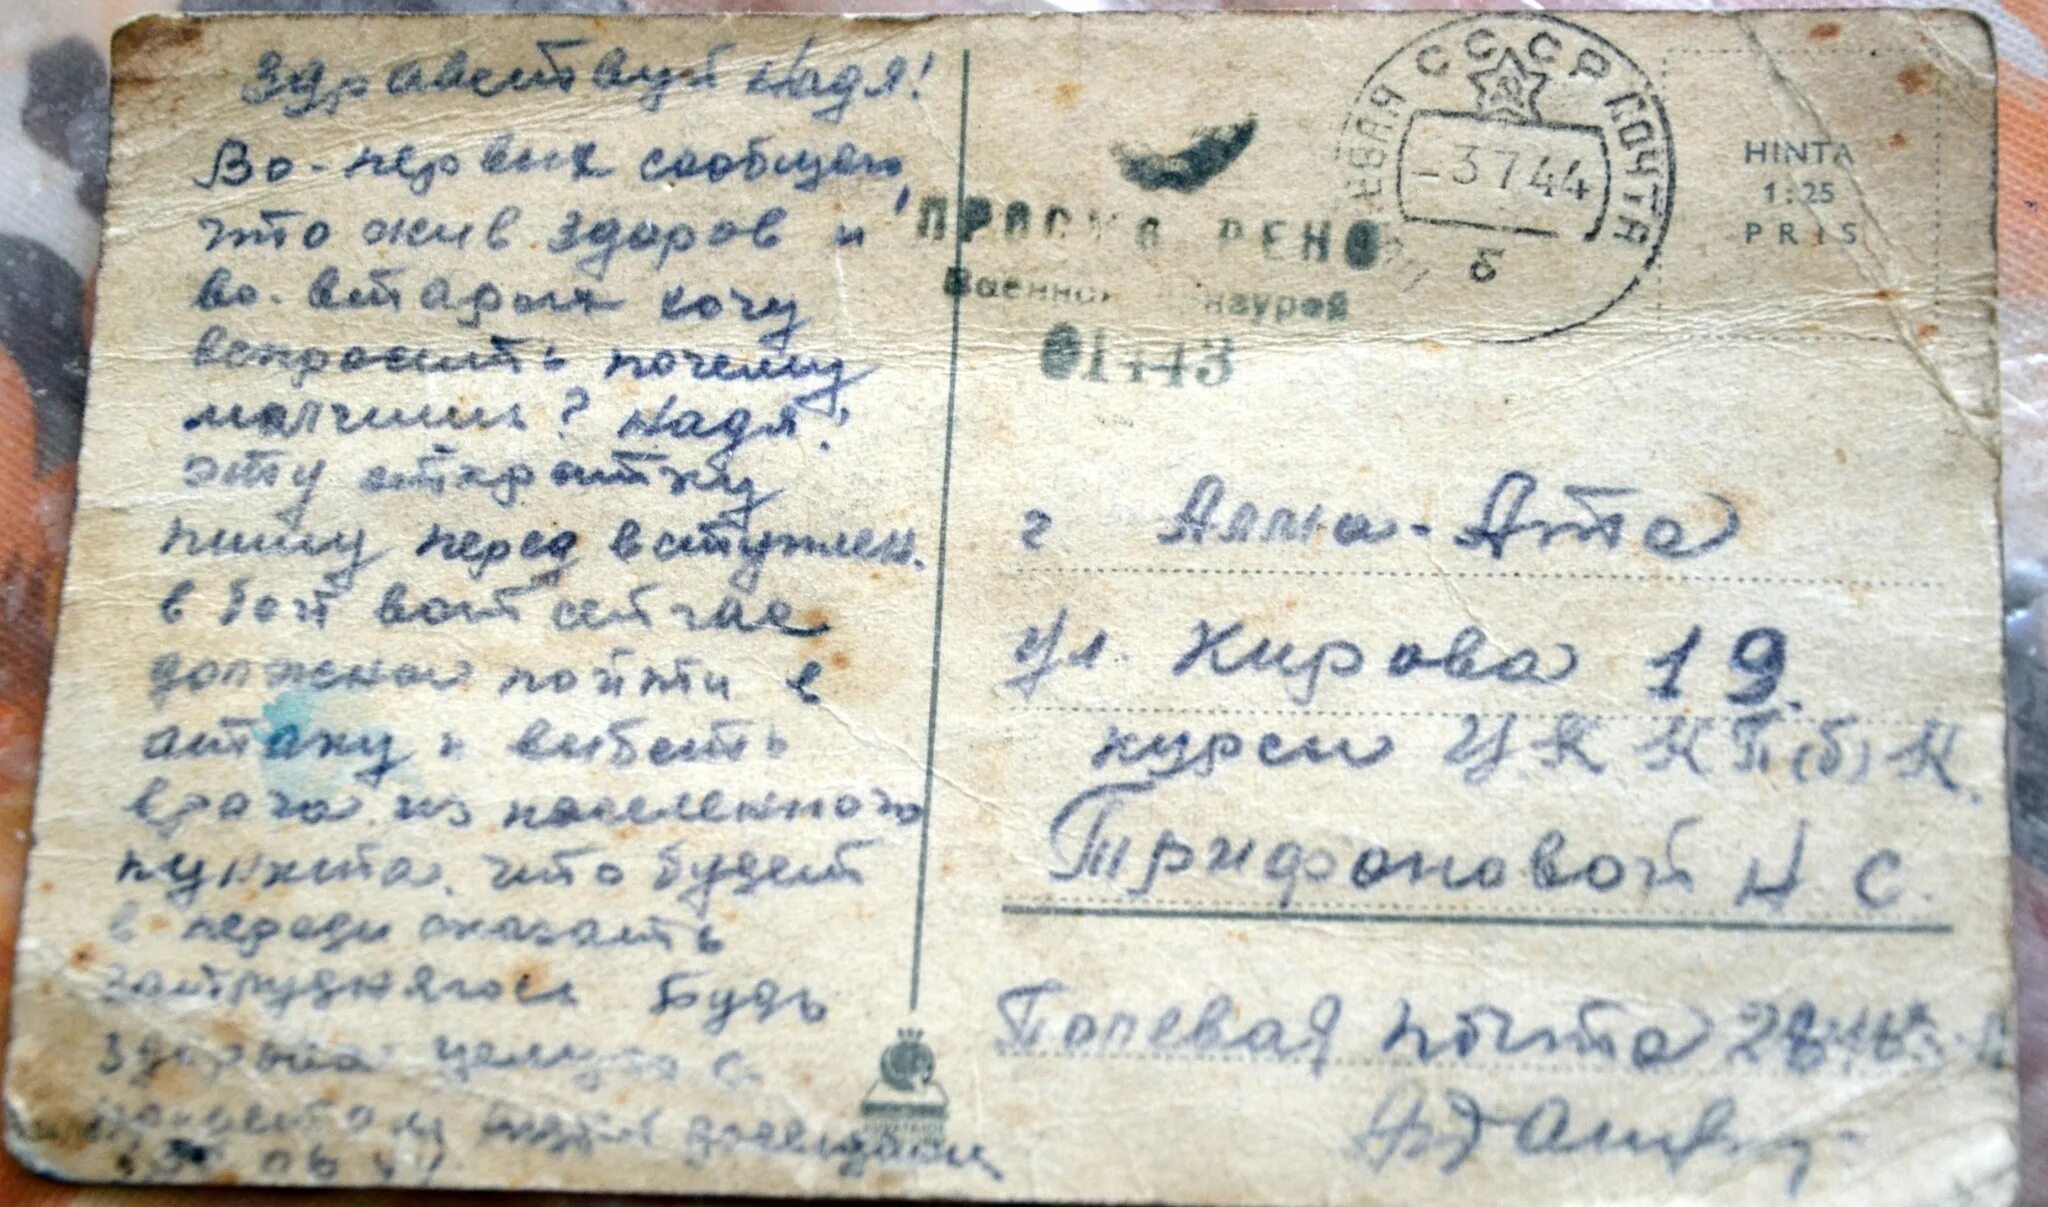 Здравствуй Надя!
Во-первых сообщаю,
что жив здоров и
во-вторых хочу
вспросить почему
молчишь? Надя!
эту открытку
пишу перед вступлен.
в бой вот сейчас
должен пойти в
атаку и выбить
врага из населенного
пункта. что будет
впереди сказать
затрудняюсь Будь
здорова целую с
приветом твой
06 44
ПОЛЕВАЯ ПОЧТА
СССР
-3 7 44
б
ПРОСМОТРЕНО
Военной Цензурой
01443
HINTA
1:25
PRIS
г. Алма-Ата
ул. Кирова 19.
курсы ЦК КП(б)К.
Трифоновой Н С.
Полевая почта